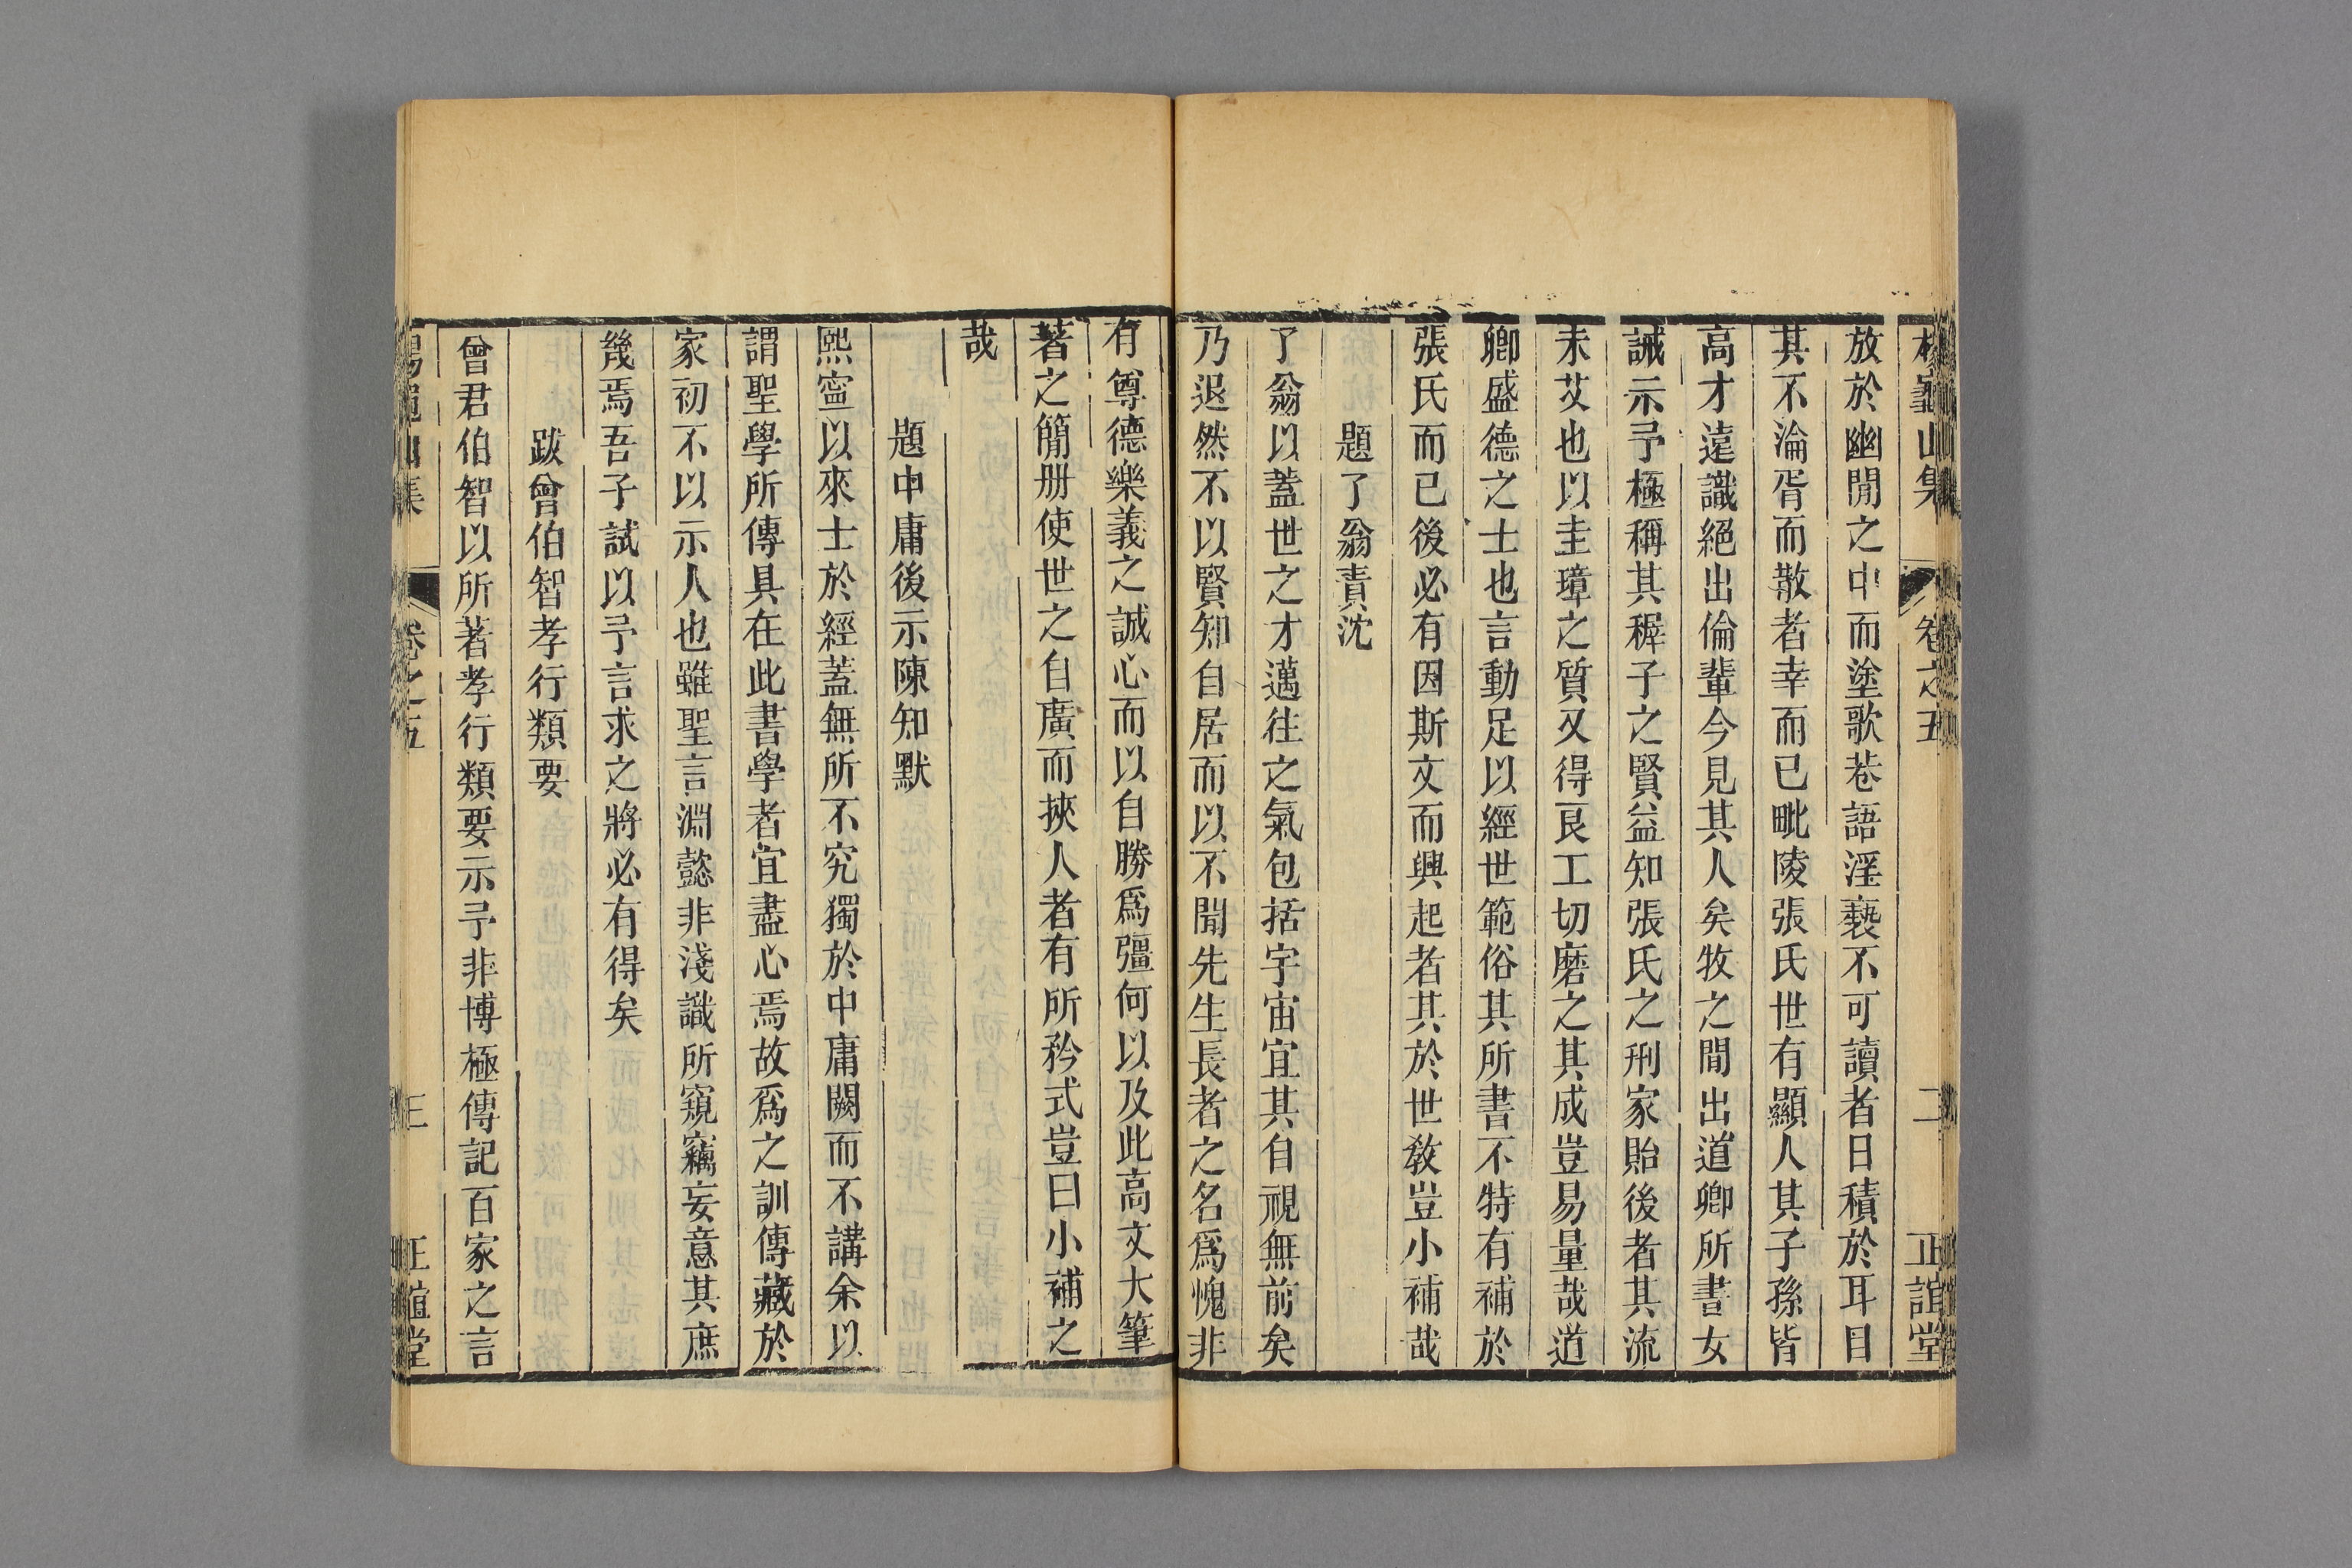 楊龜山集 卷之五 二 正誼堂
放於幽閒之中而塗歌巷語淫褻不可讀者日積於耳目
其不淪胥而散者幸而已毗陵張氏世有顯人其子孫皆
高才遠識絕出倫輩今見其人矣牧之閒出道卿所書女
誡示予極稱其穉子之賢益知張氏之刑家貽後者其流
未艾也以圭璋之質又得良工切磨之其成豈易量哉道
卿盛德之士也言動足以經世範俗其所書不特有補於
張氏而已後必有因斯文而興起者其於世敎豈小補哉
題了翁責沈
了翁以蓋世之才邁往之氣包括宇宙宜其自視無前矣
乃退然不以賢知自居而以不聞先生長者之名爲愧非
有尊德樂義之誠心而以自勝爲彊何以及此高文大筆
著之簡册使世之自廣而挾人者有所矜式豈曰小補之
哉
題中庸後示陳知默
熙寧以來士於經蓋無所不究獨於中庸闕而不講余以
謂聖學所傳具在此書學者宜盡心焉故爲之訓傳藏於
家初不以示人也雖聖言淵懿非淺識所窺竊妄意其庶
幾焉吾子試以予言求之將必有得矣
跋曾伯智孝行類要
曾君伯智以所著孝行類要示予非博極傳記百家之言
楊龜山集 卷之五 三 正誼堂